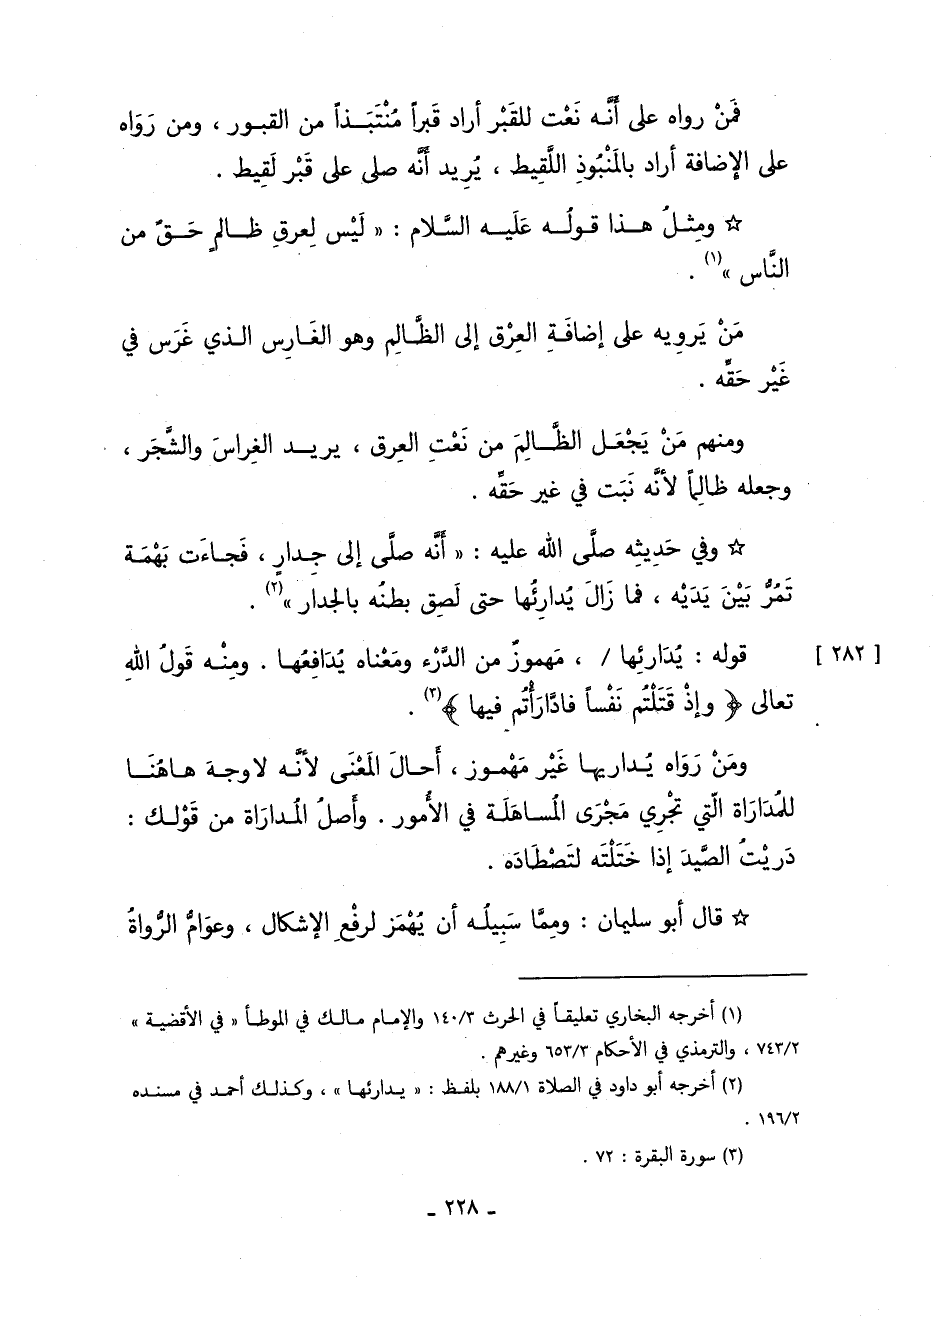 فَمَنْ رواه على أَنَّه نَعْت للقَبْر أراد قَبراً مُنْتَبَذاً من القبور ، ومن رَوَاه
على الإضافة أراد بالمَنْبُوذِ اللَّقيط ، يُرِيد أَنَّه صلى على قَبْر لَقِيط .
☆ ومِثلُ هذا قولُه عَلَيه السَّلام : « لَيْس لِعرقِ ظالمٍ حَقٌ من
النَّاس »(١) .
مَنْ يَرويه على إضافَةِ العِرْق إلى الظَّالِم وهو الغَارِس الذي غَرَس في
غَيْر حَقِّه .
ومنهم مَنْ يَجْعَل الظَّالِمَ من نَعْتِ العِرق ، يريد الغِراسَ والشَّجَر ،
وجعله ظالِماً لأنَّه نَبَت في غير حَقِّه .
☆ وفي حَدِيثِه صلَّى الله عليه : « أَنَّه صلَّى إلى جِدارٍ ، فَجاءَت بَهْمَة
تَمُرُّ بَيْنَ يَدَيْه ، فما زَالَ يُدارِئُها حتى لَصِق بطنُه بالجدار »(٢) .
[ ٢٨٢ ] قوله : يُدَارِئها / ، مَهموزٌ من الدَّرْء ومَعْناه يُدَافِعُها . ومِنْه قَولُ اللهِ
تعالى ﴿ وإذْ قَتَلْتُم نَفْساً فادَّارَأْتُم فيها ﴾(٣) .
ومَنْ رَوَاه يُداريها غَيْر مَهْموز ، أَحالَ المَعْنَى لأنَّه لاوجهَ هاهُنَا
للمُدَارَاة الّتي تَجْرِي مَجْرَى المُساهَلَة في الأُمور . وأَصلُ المُدارَاة من قَوْلك :
دَريْتُ الصَّيدَ إذا خَتَلْتَه لتَصْطَادَه .
☆ قال أبو سليمان : ومِمَّا سَبِيلُه أن يُهْمَز لرفْعِ الإشكال ، وعوَامُّ الرُّواةُ
(١) أخرجه البخاري تعليقاً في الحرث ١٤٠/٣ والإمام مالك في الموطأ « في الأقضية »
٧٤٣/٢ ، والترمذي في الأحكام ٦٥٣/٣ وغيرهم .
(٢) أخرجه أبو داود في الصلاة ١٨٨/١ بلفظ : « يدارئها » ، وكذلك أحمد في مسنده
١٩٦/٢ .
(٣) سورة البقرة : ٧٢ .
ـ ٢٢٨ ـ